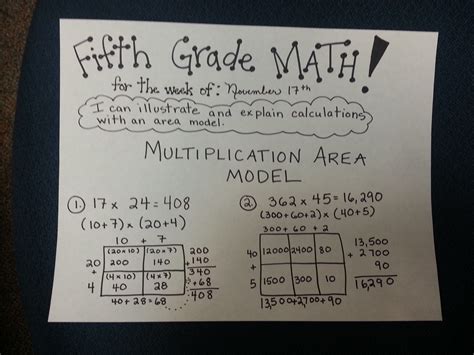 Fifth Grade MATH!
for the week of: November 17th
I can illustrate and explain calculations
with an area model.
MULTIPLICATION AREA
MODEL
① 17 x 24 = 408
(10+7) x (20+4)
10 + 7
20 (20x10) 200 (20x7) 140
+
4 (4x10) 40 (4x7) 28
40 + 28 = 68
200
+140
340
+68
408
② 362 x 45 = 16,290
(300+60+2) x (40+5)
300 + 60 + 2
40 12000 2400 80
+
5 1500 300 10
13,500+2700+90
13,500
+ 2700
90
16290